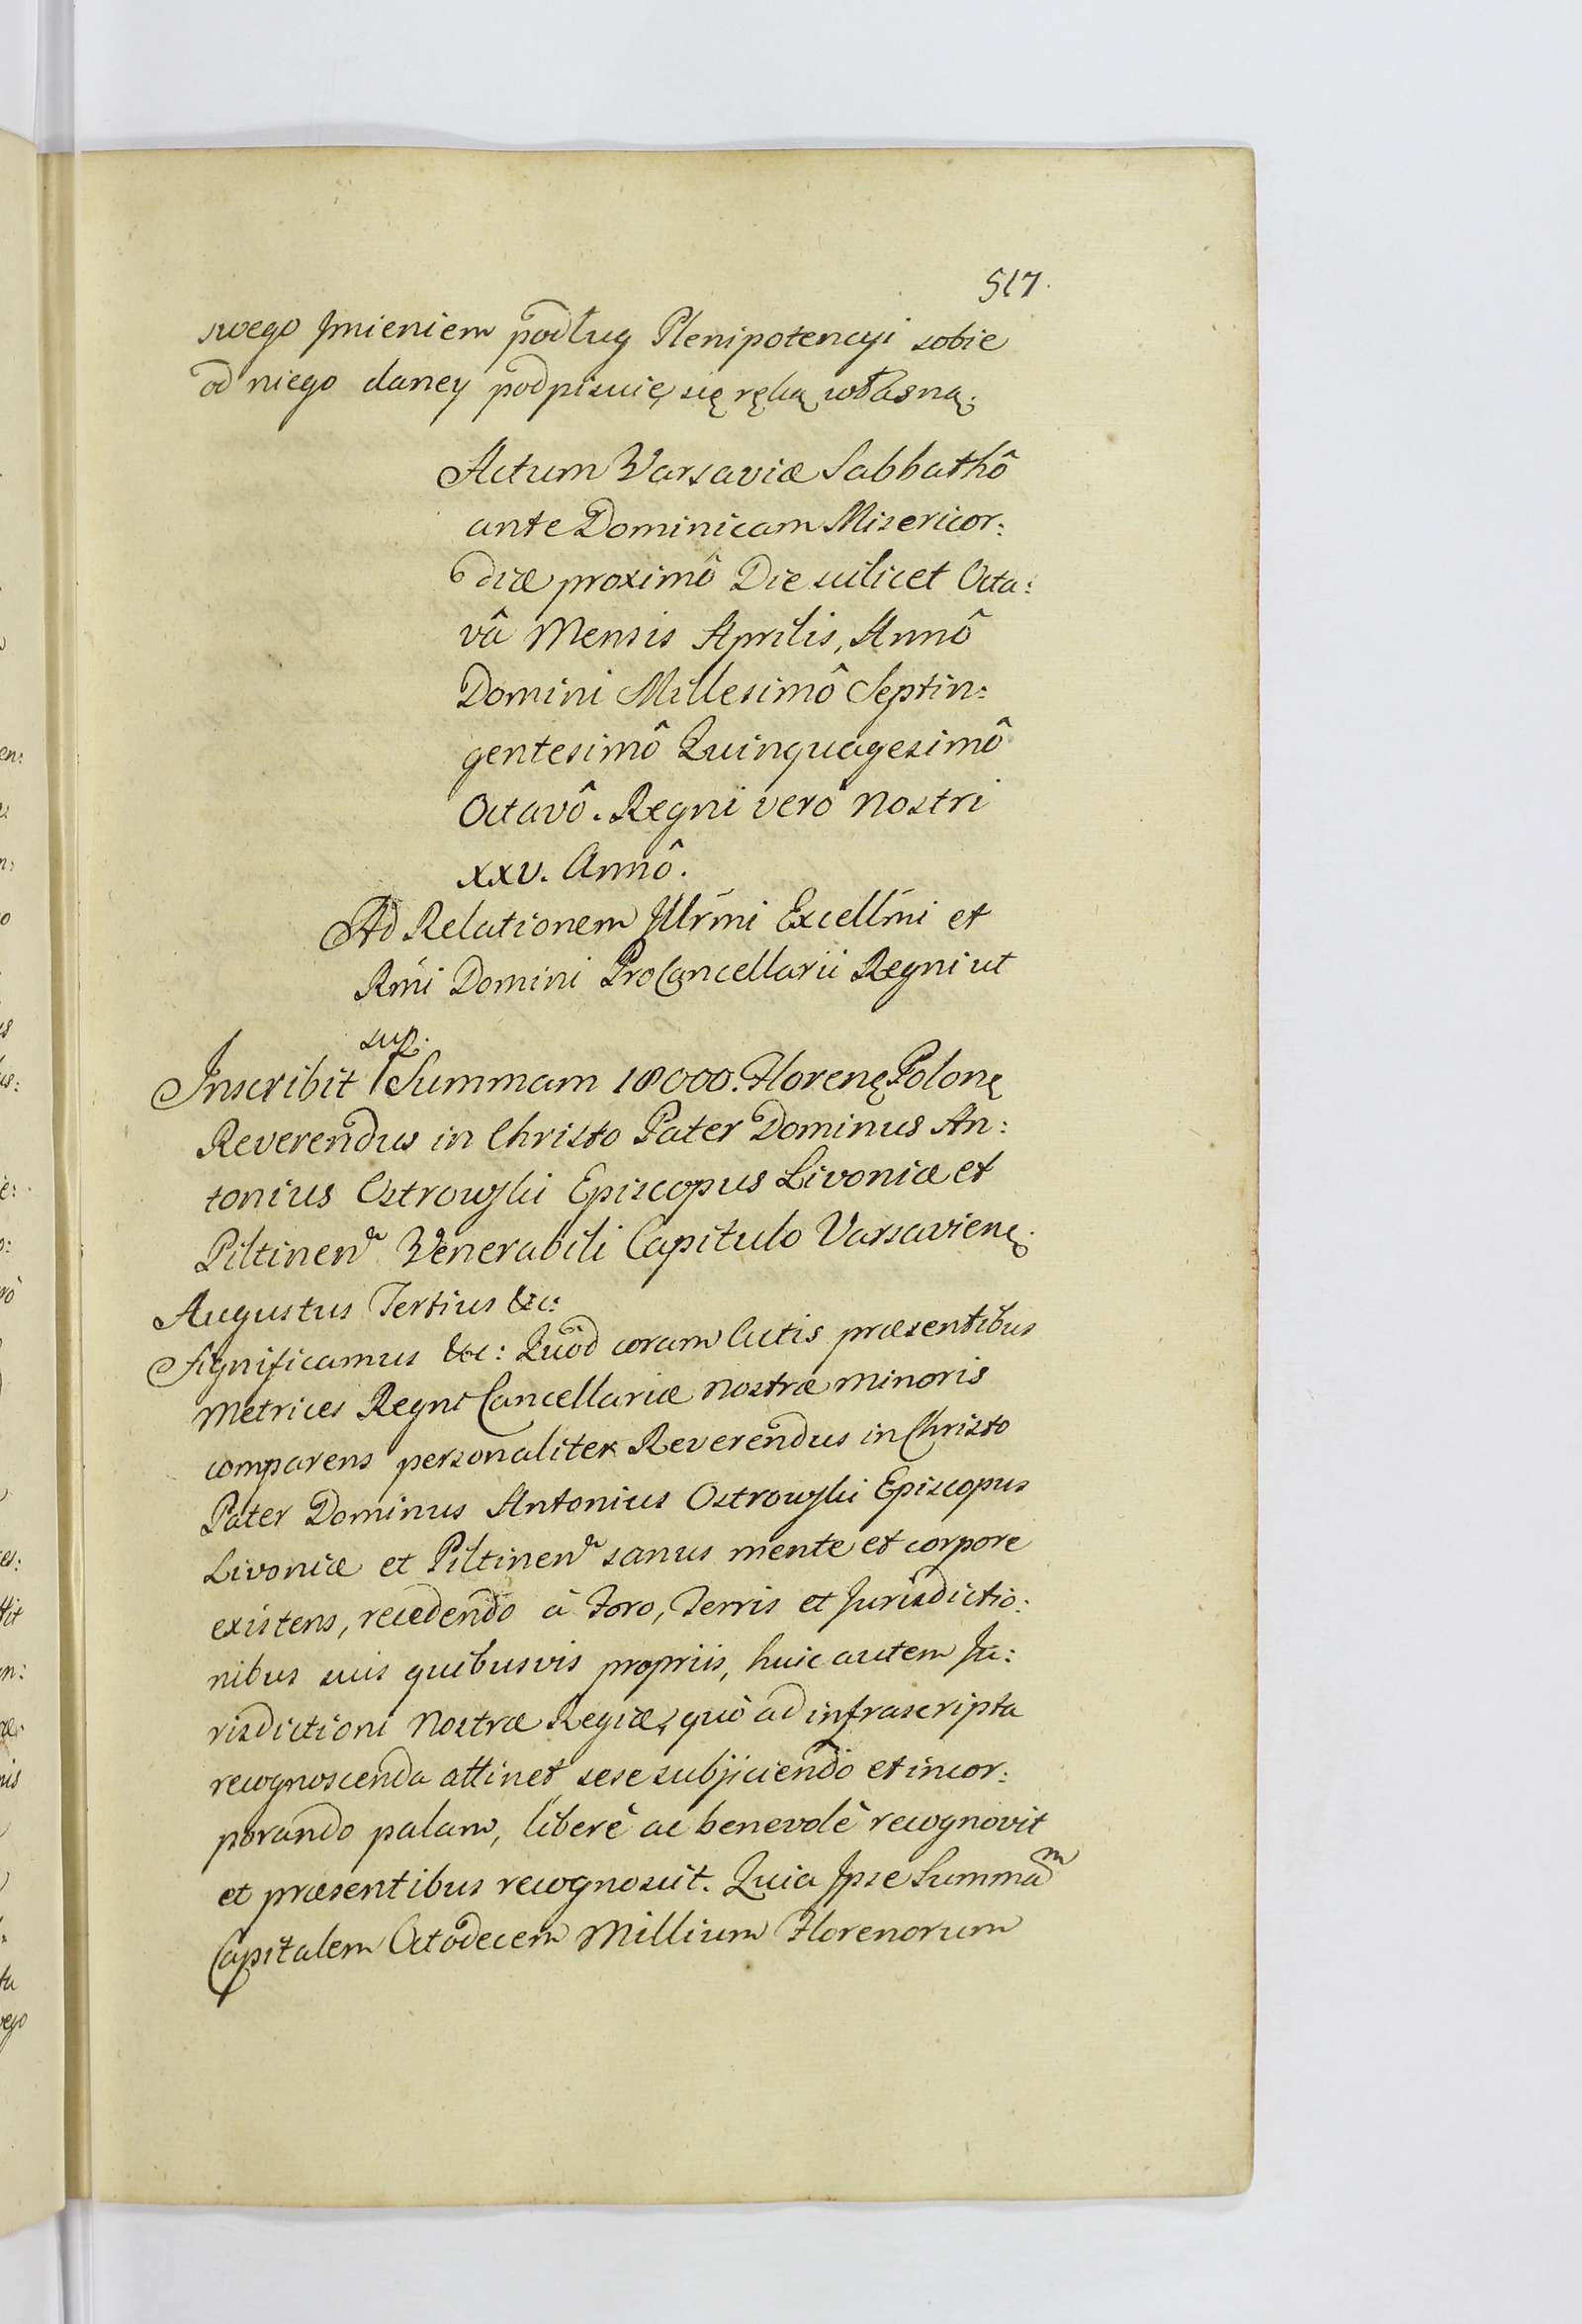 517.
swego Jmieniem podług Plenipotencyi sobie
od niego daney podpisuię się ręką własną.
Actum Varsaviæ Sabbathô
ante Dominicam Misericor:
diæ proximô Die scilicet Octa:
vâ Mensis Aprilis, Annô
Domini Millesimô Septin:
gentesimô Quinquagesimô
Octavô. Regni verò Nostri
XXV. Annô.
Ad Relationem Jllrmi Excellmi et
Rmi Domini ProCancellarii Regni ut
sup.
Inscribit Summam 18000. Florenę Polonę
Reverendus in Christo Pater Dominus An:
tonius Ostrowski Episcopus Livoniæ et
Piltinen Venerabili Capitulo Varsavienę.
Augustus Tertius &c:
Significamus &c: Quod coram Actis præsentibus
Metrices Regni Cancellariæ Nostræ Minoris
comparens personaliter Reverendus in Christo
Pater Dominus Antonius Ostrowski Episcopus
Livoniæ et Piltinen sanus mente et corpore
existens, recedendo à Foro, Terris et Jurisdictio:
nibus suis quibusvis propriis, huic autem Ju:
risdictioni Nostræ Regiæ, quò ad infrascripta
recognoscenda attinet sese subjiciendo et incor:
porando palam, liberè ac benevolè recognovit
et præsentibus recognoscit. Quia Jpse Summam
Capitalem Octodecem Millium Florenorum